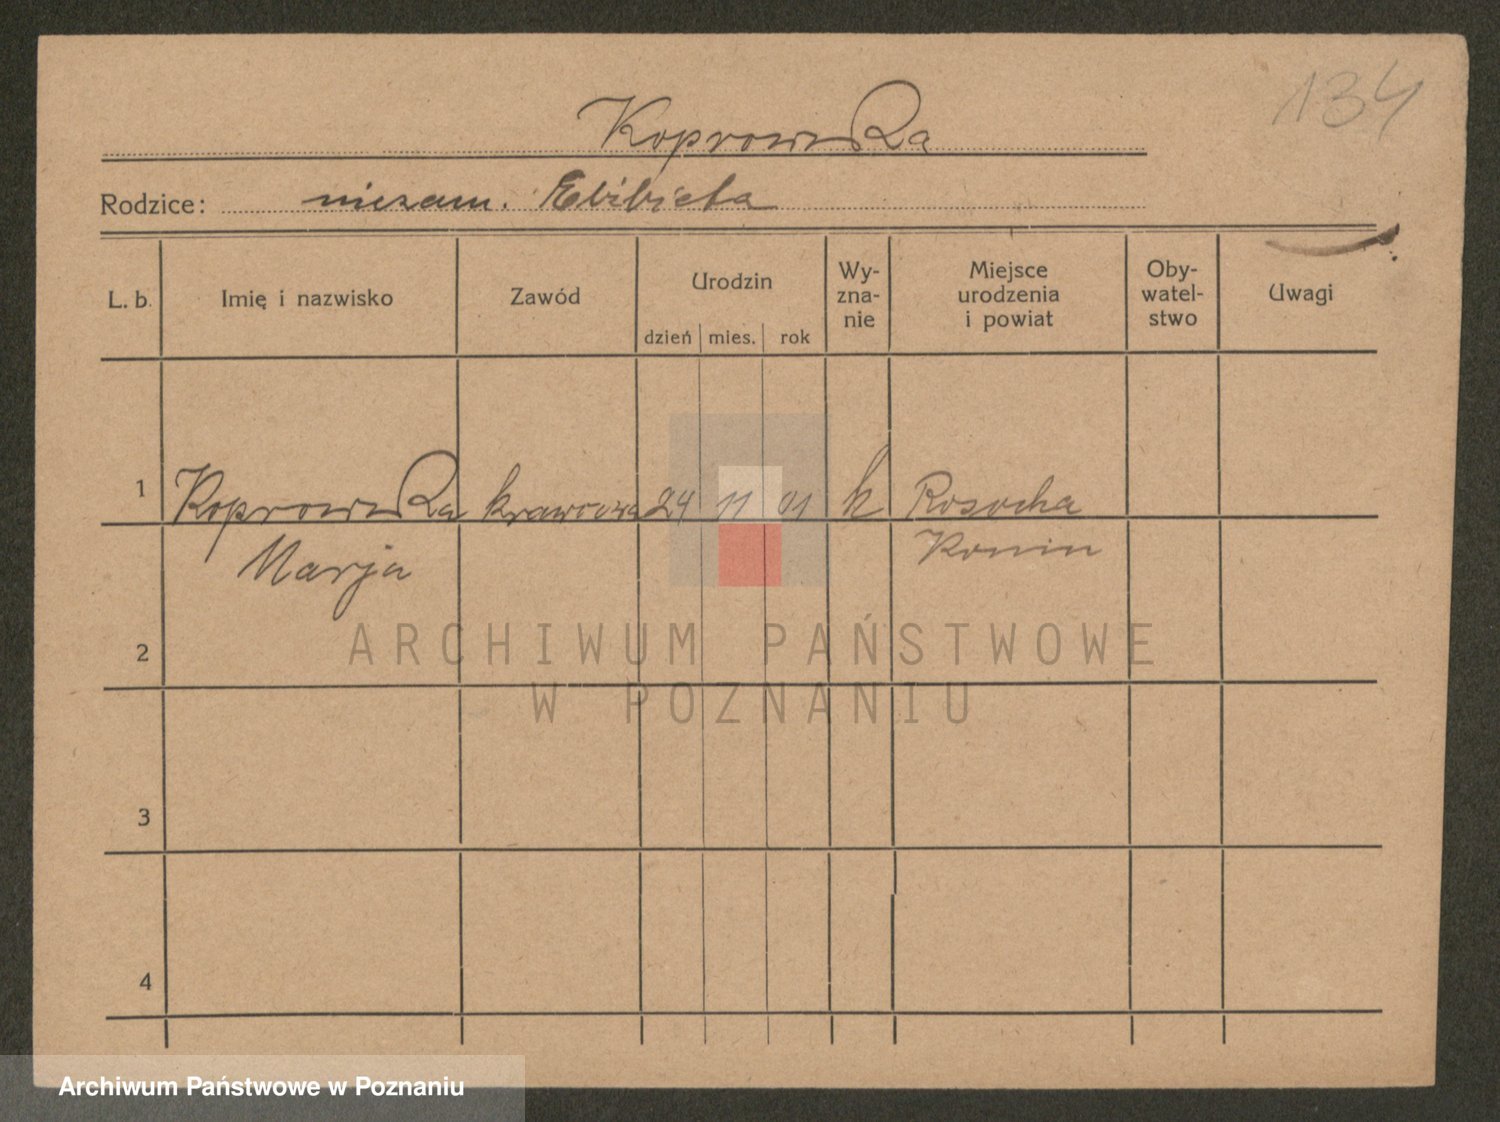 134
Koprowska
Rodzice: niezam. Elżbieta
L. b. Imię i nazwisko Zawód Urodzin Wy-zna-nie Miejsce urodzenia i powiat Oby-watel-stwo Uwagi
dzień mies. rok
1 Koprowska krawcowa 24 11 01 k Rosocha
Marja Konin
2
ARCHIWUM PAŃSTWOWE
W POZNANIU
3
4
Archiwum Państwowe w Poznaniu